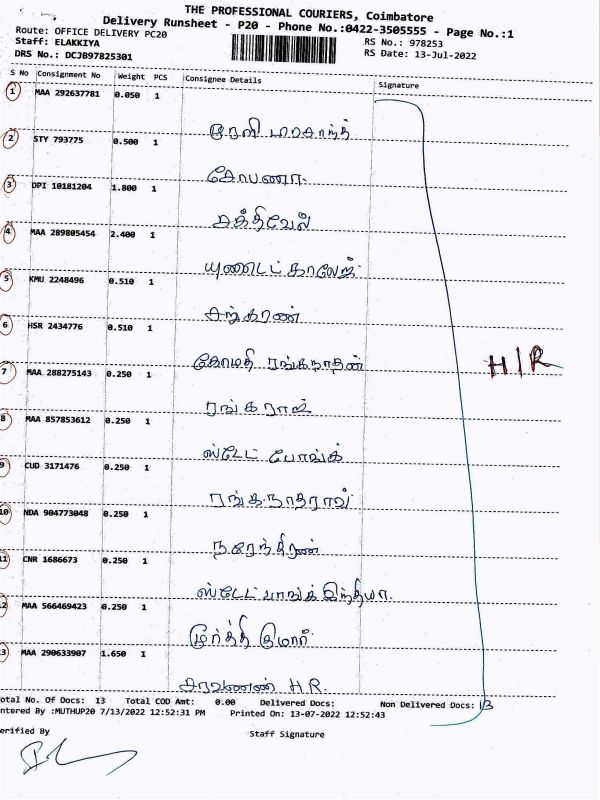 THE PROFESSIONAL COURIERS, Coimbatore
Delivery Runsheet - P20 - Phone No.:0422-3505555 - Page No.:1
Route: OFFICE DELIVERY PC20
RS No.: 978253
Staff: ELAKKIYA
RS Date: 13-Jul-2022
DRS No.: DCJB97825301
S No Consignment No Weight PCS Consignee Details Signature
1 MAA 292637781 0.050 1
2 STY 793775 0.500 1
கோபனா
3 DPI 10181204 1.800 1
சக்திவேல்
4 MAA 289805454 2.400 1
யுனைடெட் காலேஜ்
5 KMU 2248496 0.510 1
சங்கரன்
6 HSR 2434776 0.510 1
கோமதி ரங்கநாதன்
H/R
7 MAA 288275143 0.250 1
ரங்கராஜ்
8 MAA 857853612 0.250 1
ஸ்டேட் பேங்க்
9 CUD 3171476 0.250 1
ரங்கநாதராவ்
10 NDA 904773048 0.250 1
நரேந்திரன்
11 CNR 1686673 0.250 1
ஸ்டேட் பாங்க் இந்தியா
12 MAA 566469423 0.250 1
மூர்த்தி குமார்
13 MAA 290633907 1.650 1
சரவணன் H.R.
otal No. Of Docs: 13 Total COD Amt: 0.00 Delivered Docs: Non Delivered Docs: 13
ntered By :MUTHUP20 7/13/2022 12:52:31 PM Printed On: 13-07-2022 12:52:43
erified By
Staff Signature